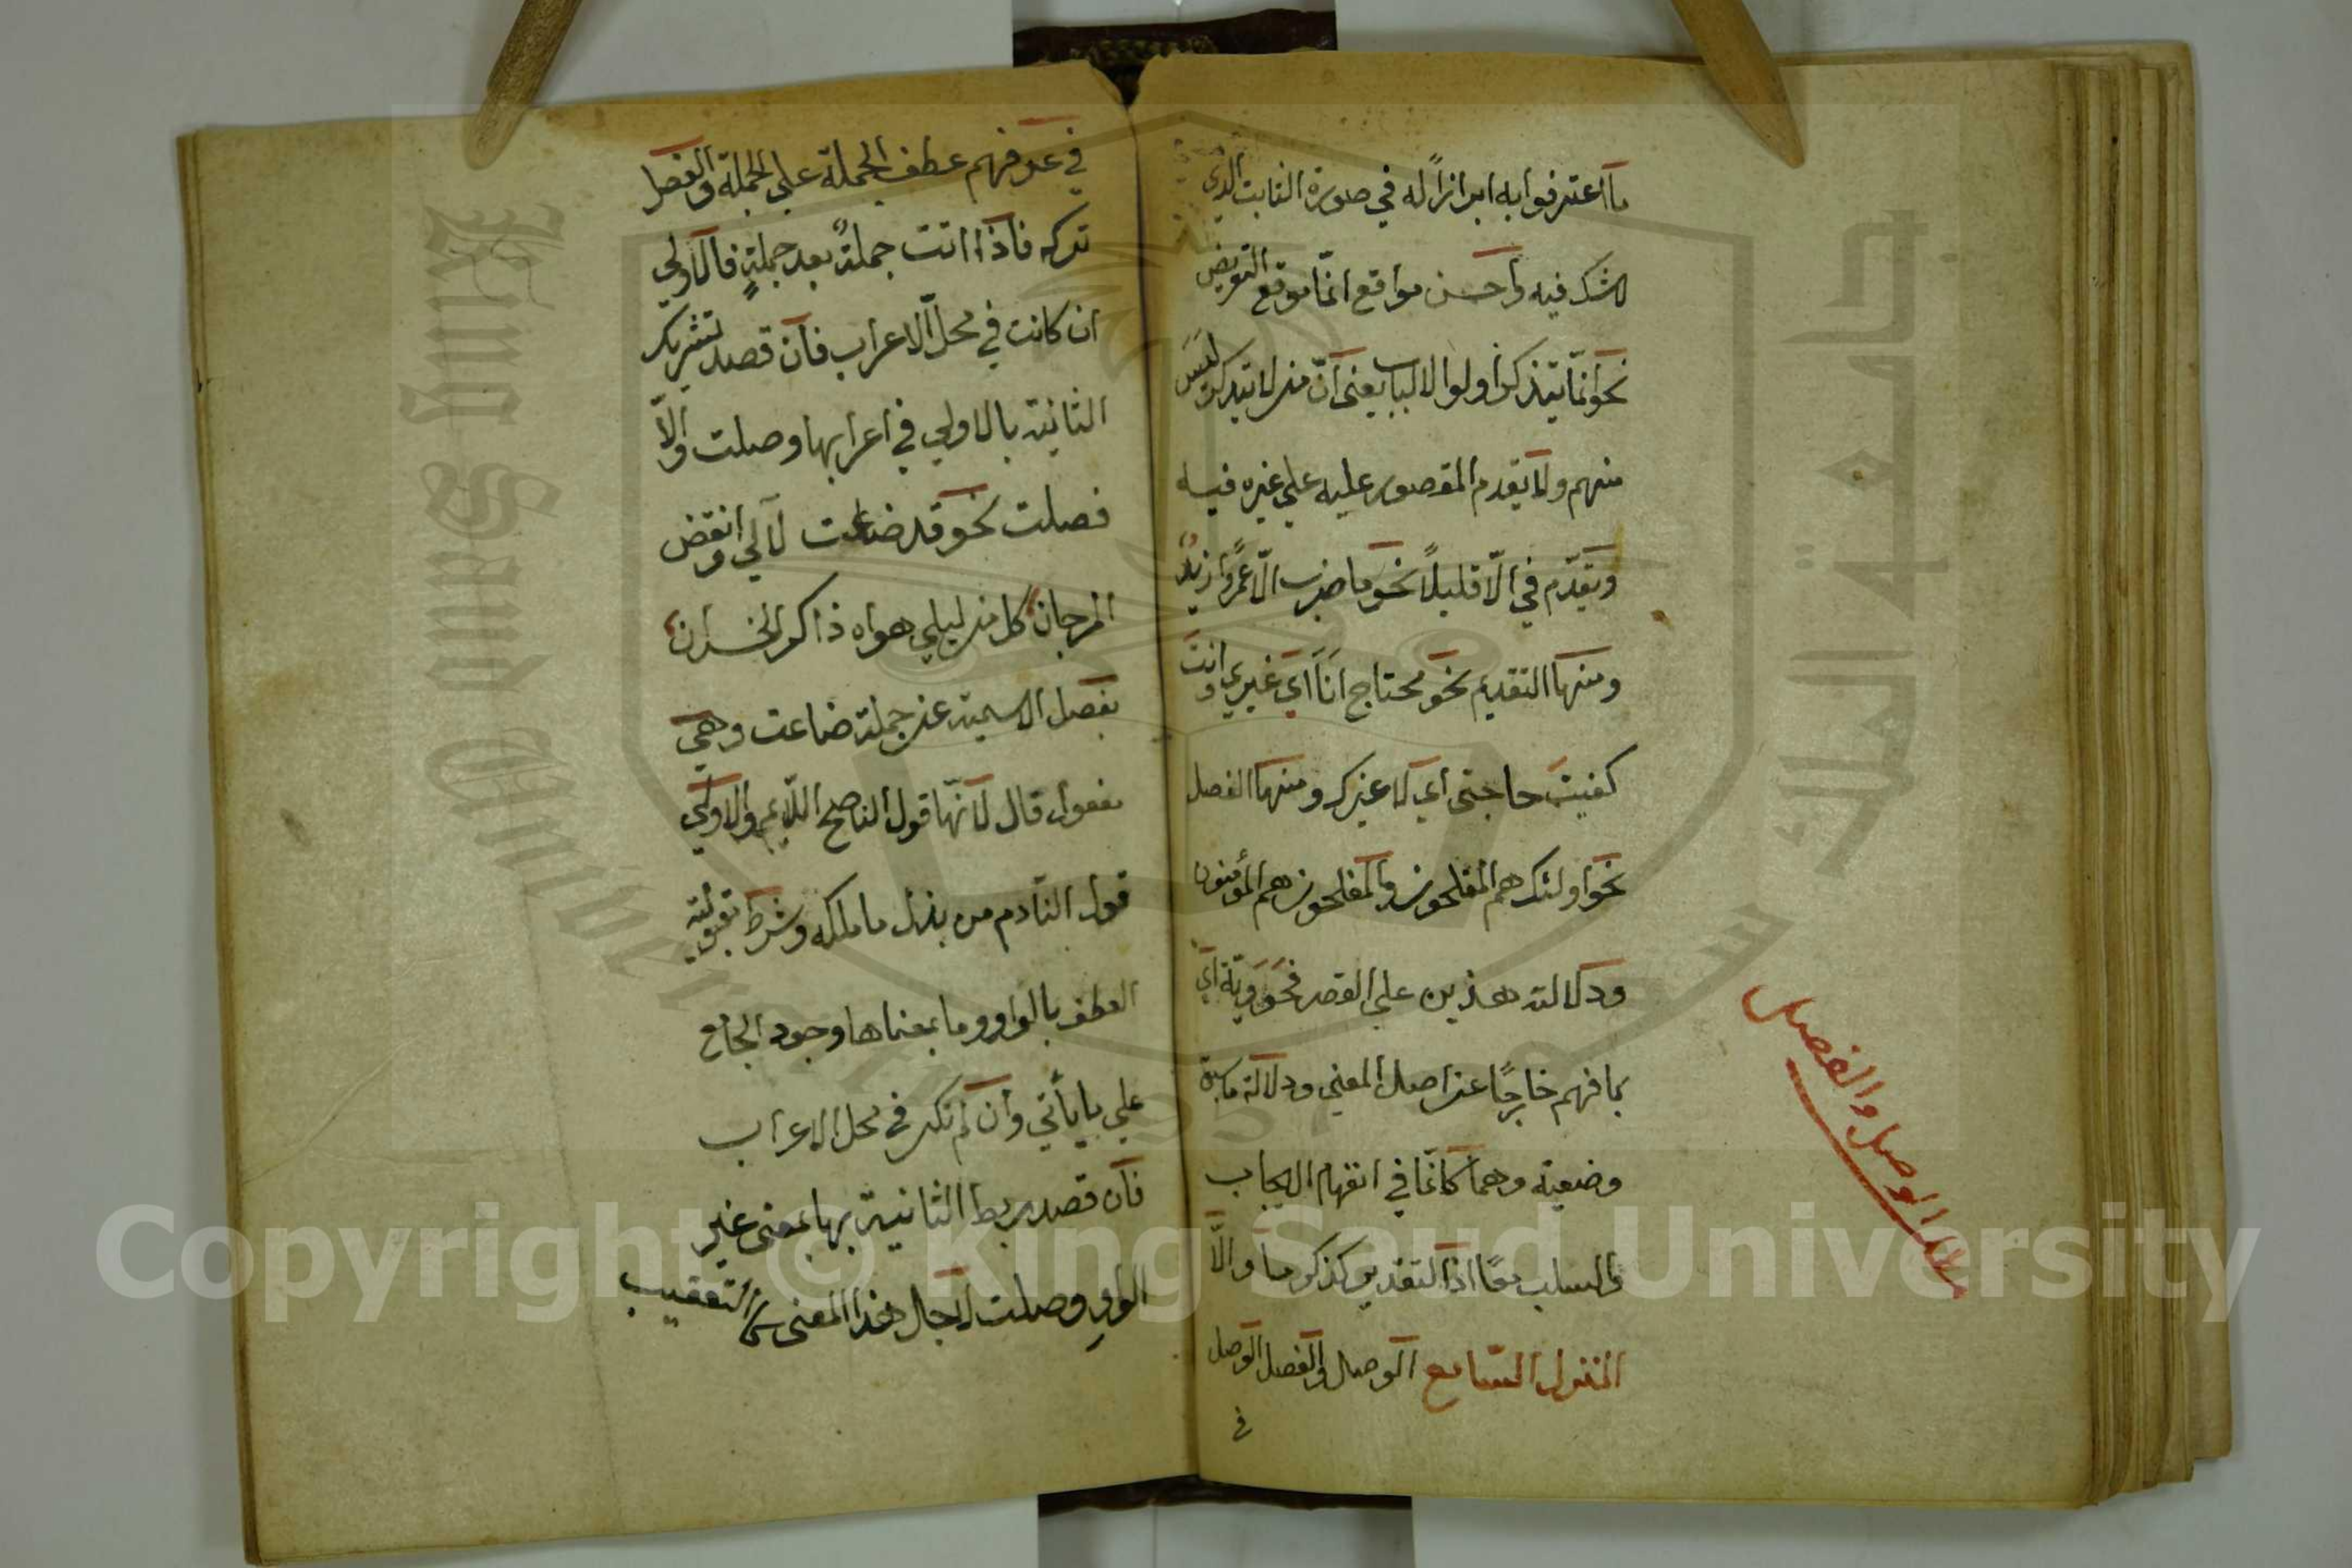 ما اعترفوا به ابرازاً له في صورة الثابت الذي
لا شك فيه واحسن مواقع انّما موقع التعريض
نحو انّما يتذكر اولوا الالباب يعني انّ من لا يتذكر ليس
منهم ولا يقدم المقصور عليه علي غيره فيه
ويقدّم في الّا قليلاً نحو ما ضرب الّا عمرًا زيدٌ
ومنها التقديم نحو محتاج انا اي غيري وانت
كفيت حاجتي اي لا غيرك ومنها الفصل
نحو اولئك هم المفلحون والمفلحون هم المؤمنون
ودلالة هذين علي القصر فحوويّة اي
بما فهم خارجًا عن اصل المعني ودلالة ما سبق
وضعية وهما كانّما في انفهام الايجاب
والسلب معًا اذا التقديم كذكر ما والّا
المنزل السابع الوصل والفصل الوصل
في
الوصل والفصل
في عرفهم عطف الجملة علي الجملة والفصل
تركه فاذا اتت جملةٌ بعد جملةٍ فالاولي
ان كانت في محلّ الاعراب فان قصد تشريك
الثانية بالاولي في اعرابها وصلت والّا
فصلت نحو قد ضاعت لآلي وانقض
المرجان كل من ليلي هواه ذاكر الخسران
بفصل الاسمية عن جملة ضاعت وهي
مفعول قال لانّها قول الناصح اللايم والاولي
قول النادم من بذل ما ملكه وشرط مقبولية
العطف بالواو وما بمعناها وجود الجامع
علي ما يأتي وان لم تكن في محل الاعراب
فان قصد ربط الثانية بها بمعني غير
الواو وصلت لاجل هذا المعني كالتعقيب
Copyright © King Saud University
King Saud University
جامعة الملك سعود
1957